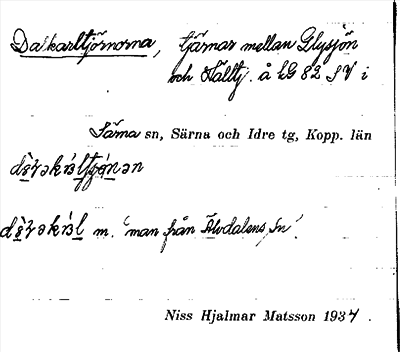 Dalkarltjörnorna, tjärnar mellan Glysjön
och Hälltj. å kG 82 SV i
Särna sn, Särna och Idre tg, Kopp. län
m. 'man från Älvdalens sn'.
Niss Hjalmar Matsson 1937.